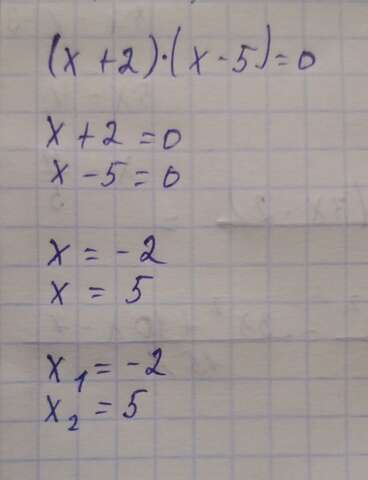 (x + 2) · (x - 5) = 0
x + 2 = 0
x - 5 = 0
x = -2
x = 5
x₁ = -2
x₂ = 5